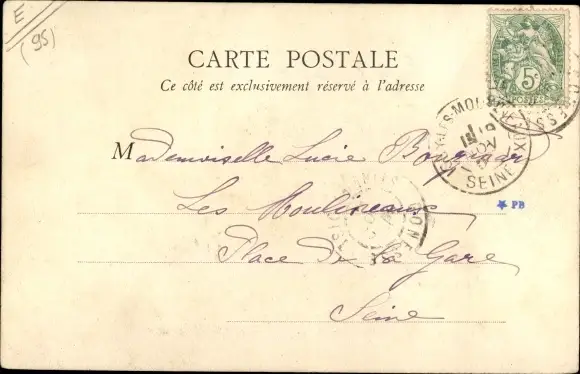 E
(95)
CARTE POSTALE
Ce côté est exclusivement réservé à l'adresse
5c
POSTES
Mademoiselle Lucie
Les Moulineaux
Place de la Gare
Seine
SEINE
PB